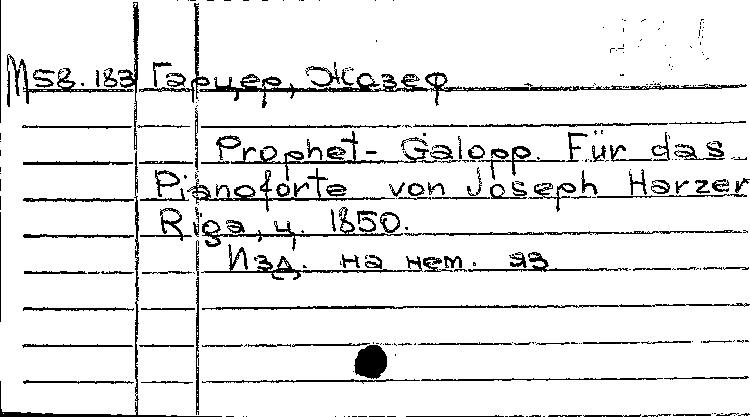 М58.183 Гарцер, Жозеф
Prophet- Galopp. Für das
Pianoforte von Joseph Harzer
Riga, ц. 1850.
Изд. на нем. яз